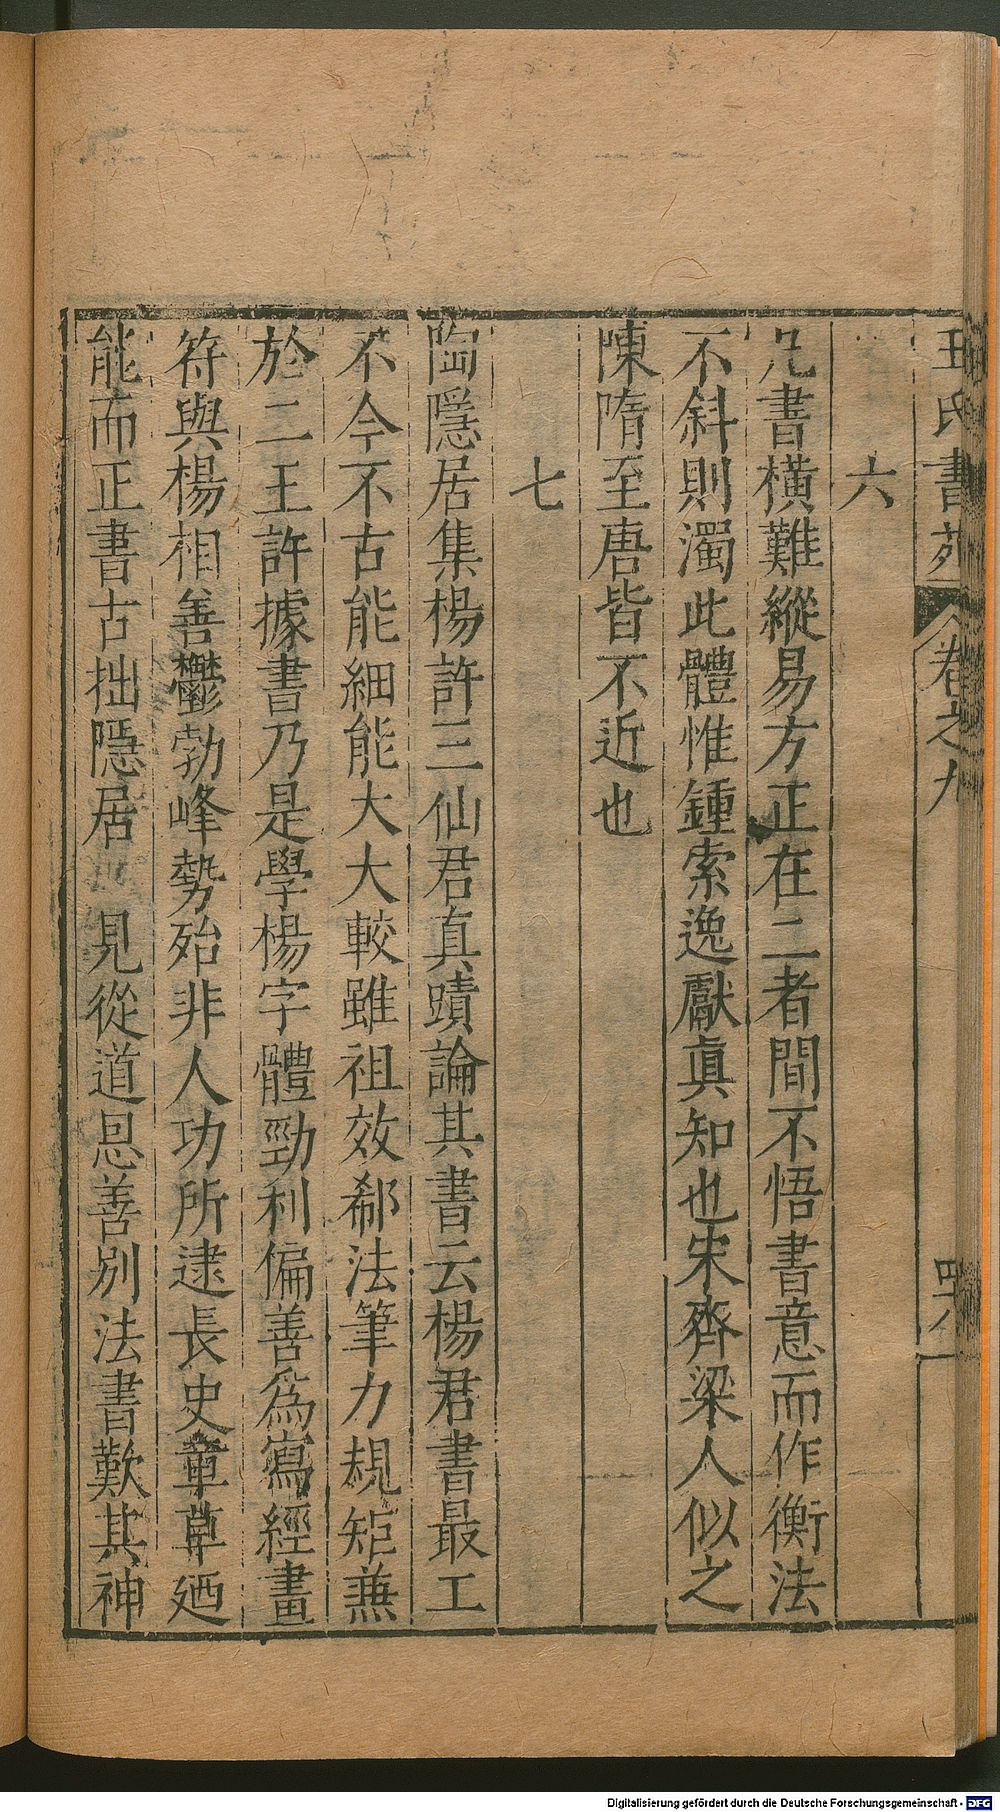 王氏書苑 卷之九 四十八
六
凡書橫難縱易方正在二者間不悟書意而作衡法
不斜則濁此體惟鍾索逸獻眞知也宋齊梁人似之
陳隋至唐皆不近也
七
陶隱居集楊許三仙君真蹟論其書云楊君書最工
不今不古能細能大大較雖祖效郗法筆力規矩兼
於二王許據書乃是學楊字體勁利偏善爲寫經畫
符與楊相善鬱勃峰勢殆非人功所逮長史章草廼
能而正書古拙隱居 見從道恩善別法書歎其神
Digitalisierung gefördert durch die Deutsche Forschungsgemeinschaft - DFG